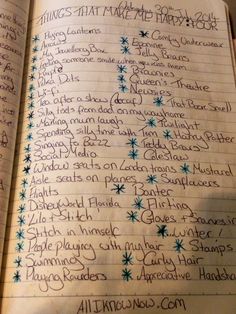 THINGS THAT MAKE ME HAPPY
30th July 2014
TOUR
Flying Lanterns
My Jewellery Box
Making someone smile when you see them
Wi-Fi
Tea after a show (decaf)
Silly texts from dad or my away home
Making mum laugh
Spending silly time with Tim
Singing to Buzz
Social Media
Window seats on London trains
Aisle seats on planes
Lights
Disneyworld Florida
Lilo + Stitch
Stitch in himself
People playing with my hair
Swimming
Playing Rounders
Comfy Underwear
Eponine
Jelly Beans
Brownies
Queen's Theatre
Newsies
That Poor Smell
Twilight
Harry Potter
Teddy Bears
Coleslaw
Mustard
Sunflowers
Banter
Flirting
Gloves + Scarves in
Winter!
Stamps
Curly Hair
Appreciative Handshakes
ALLIKNOWNOW.COM